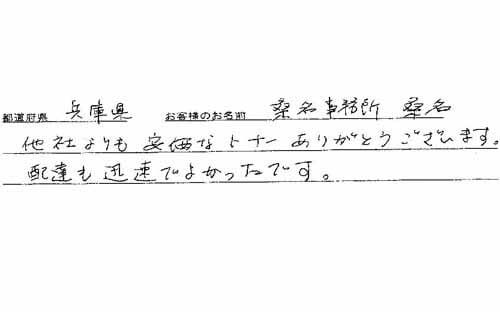 都道府県 兵庫県 お客様のお名前 桑名事務所 桑名
他社よりも安価なトナーありがとうございます。
配達も迅速でよかったです。